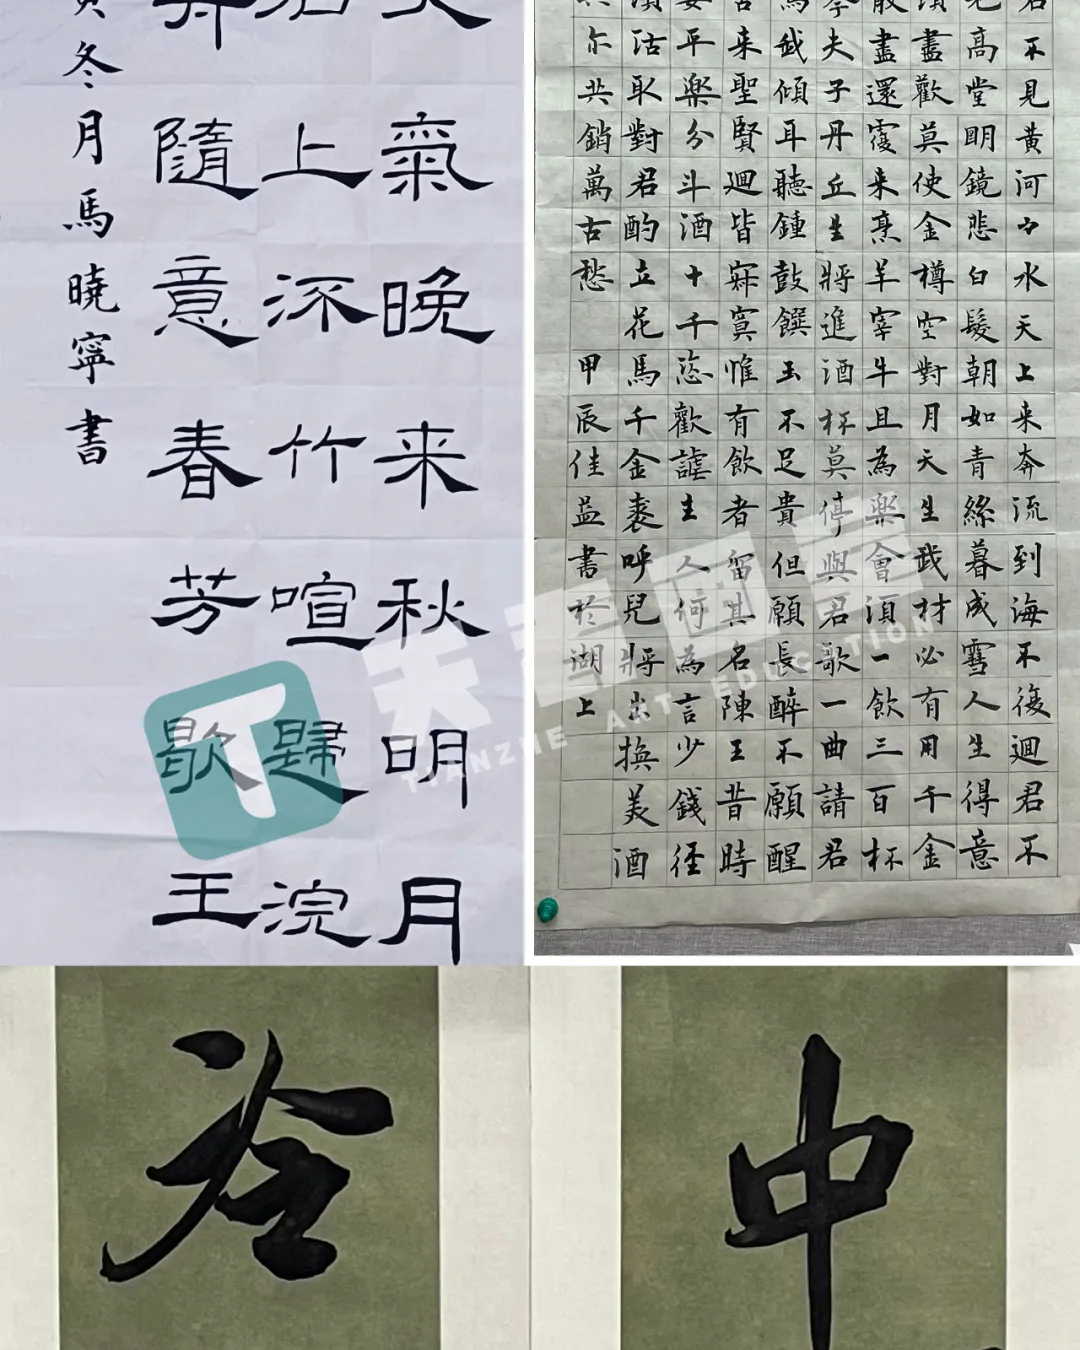 氣晚来秋明月
上流竹喧歸浣
隨意春芳歇王
冬月馬曉寧書
不見黃河之水天上来奔流到海不復迴君不
高堂明鏡悲白髮朝如青絲暮成雪人生得意
盡歡莫使金樽空對月天生我材必有用千金
盡還復来烹羊宰牛且為樂會須一飲三百杯
夫子丹丘生將進酒杯莫停與君歌一曲請君
我傾耳聽鍾鼓饌玉不足貴但願長醉不願醒
来聖賢迴皆寂寞惟有飲者留其名陳王昔時
平樂分斗酒十千恣歡謔主人何為言少錢徑
沽取對君酌立花馬千金裘呼兒將出換美酒
尔共銷萬古愁 甲辰佳益書於湖上
中
天哲國畫
TIANZHE ART EDUCATION